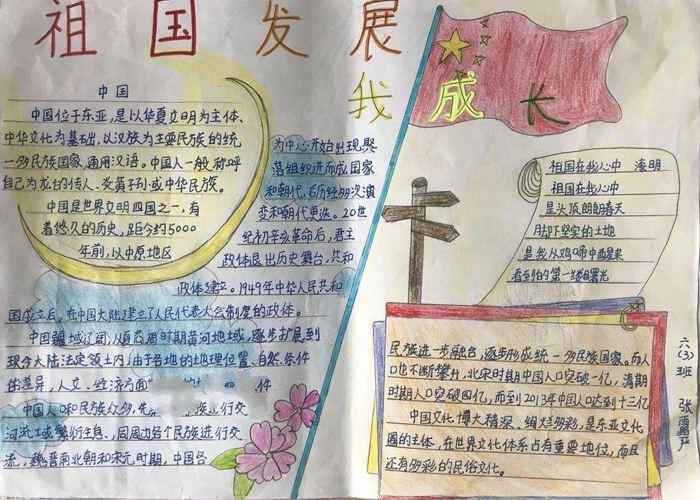 祖国发展
我成长
中国
中国位于东亚,是以华夏文明为主体、
中华文化为基础,以汉族为主要民族的统
一多民族国家,通用汉语。中国人一般称呼
自己为龙的传人、炎黄子孙或中华民族。
中国是世界文明四国之一,有
着悠久的历史,距今约5000
年前,以中原地区
为中心开始出现聚
落组织进而成国家
和朝代,后历经多次演
变和朝代更迭。20世
纪初辛亥革命后,君主
政体退出历史舞台,共和
政体建立。1949年中华人民共和
国成立后,在中国大陆建立了人民代表大会制度的政体。
中国疆域辽阔,从西周时期黄河地域,逐步扩展到
现今大陆法定领土内,由于各地的地理位置、自然条件
的差异,人文、经济方面
件
中国人口和民族众多,先
族进行交
河流域繁衍生息、同周边各个民族进行交
流,魏晋南北朝和宋元时期,中国各
祖国在我心中 海明
祖国在我心中
是头顶朗朗春天
脚下坚实的土地
是我从鸡啼中西望来
看到怕的第一缕曙光
民族进一步融合,逐步形成统一多民族国家。而人
口也不断攀升,北宋时期中国人口突破一亿,清朝
时期人口突破四亿,而到2013年中国人口达到十三亿
中国文化博大精深、绚烂多彩,是东亚文化
圈的主体,在世界文化体系占有重要地位,而且
还有多彩的民俗文化。
六(3)班 张